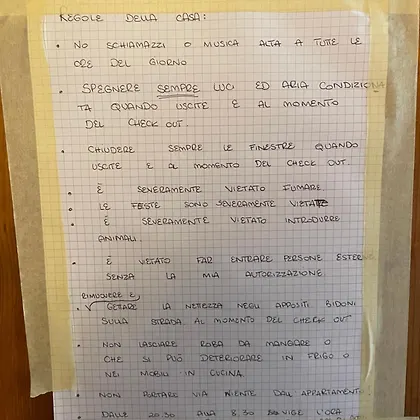 REGOLE DELLA CASA:
• NO SCHIAMAZZI O MUSICA ALTA A TUTTE LE
ORE DEL GIORNO
• SPEGNERE SEMPRE LUCI ED ARIA CONDIZIONA
TA QUANDO USCITE E AL MOMENTO
DEL CHECK OUT.
• CHIUDERE SEMPRE LE FINESTRE QUANDO
USCITE E AL MOMENTO DEL CHECK OUT.
• È SEVERAMENTE VIETATO FUMARE
• LE FESTE SONO SEVERAMENTE VIETATE
• È SEVERAMENTE VIETATO INTRODURRE
ANIMALI.
• È VIETATO FAR ENTRARE PERSONE ESTERNE
SENZA LA MIA AUTORIZZAZIONE
RIMUOVERE E
• GETTARE LA NETTEZZA NEGLI APPOSITI BIDONI
SULLA STRADA AL MOMENTO DEL CHECK OUT
• NON LASCIARE ROBA DA MANGARE O
CHE SI PUÒ DETERIORARE IN FRIGO O
NEI MOBILI IN CUCINA
• NON PORTARE VIA NIENTE DALL'APPARTAMENTO
• DALLE 20.30 ALLA 8.30 VIGE L'ORA